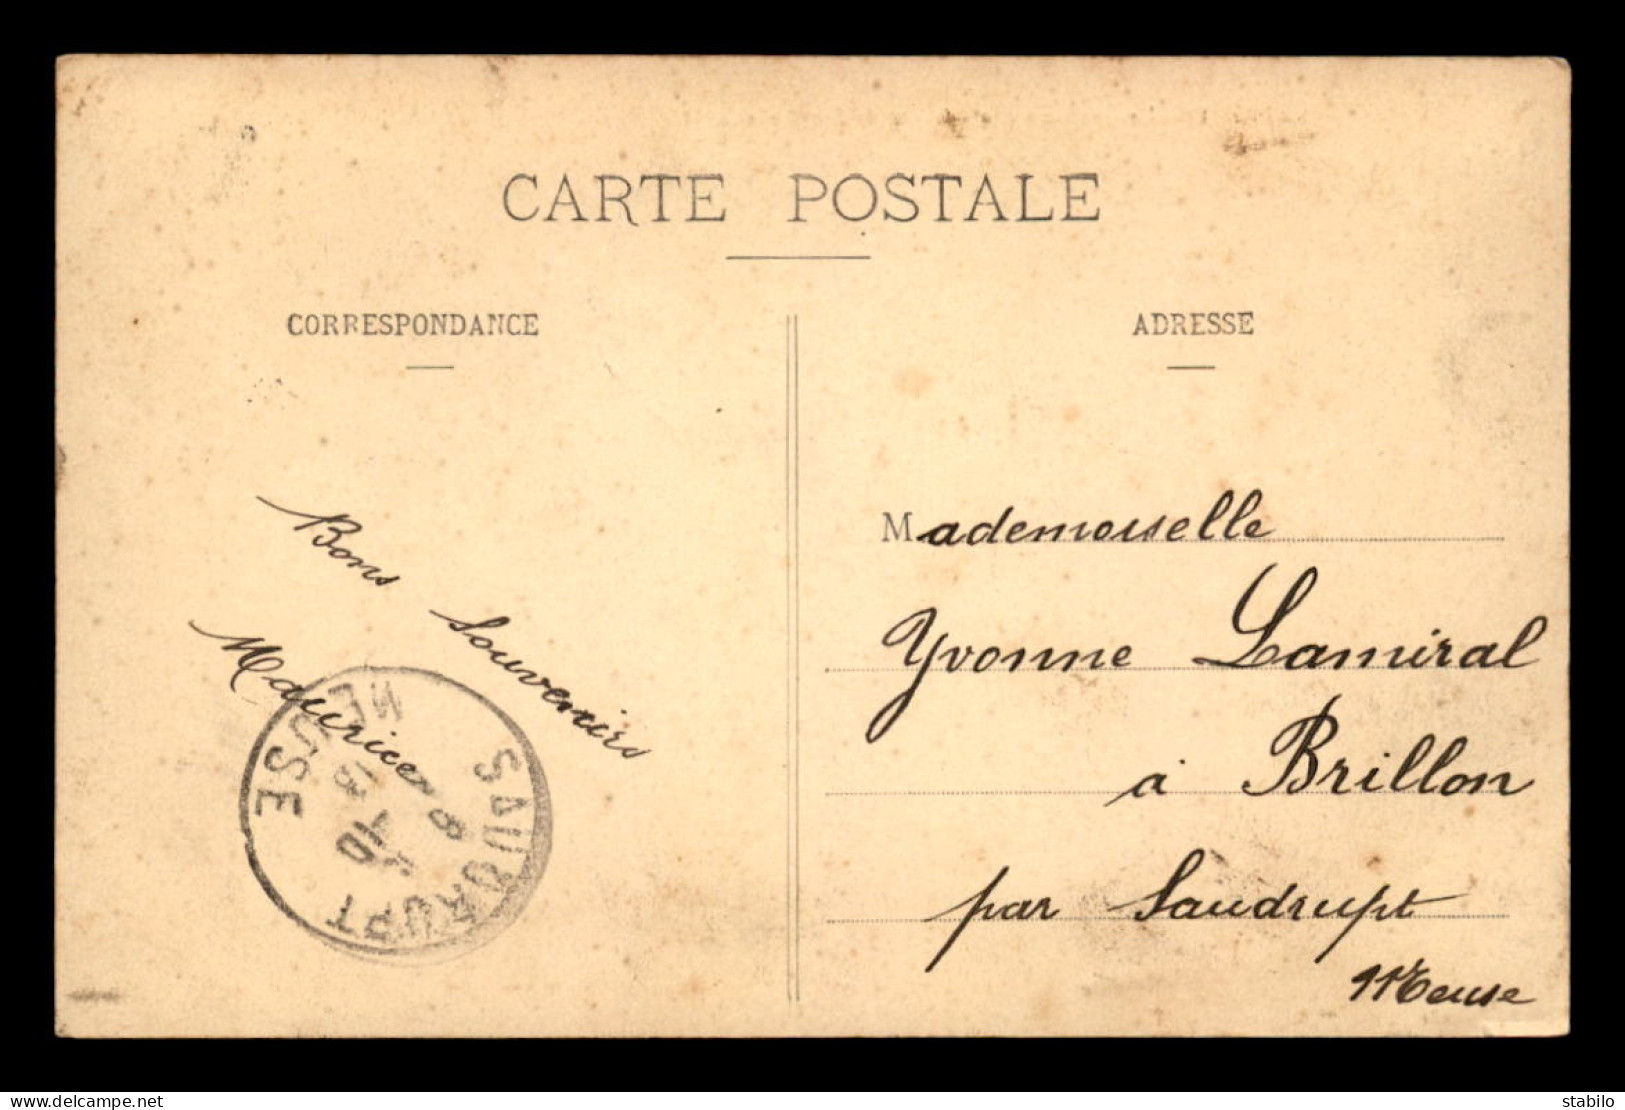 CARTE POSTALE
CORRESPONDANCE
ADRESSE
Bons Souvenirs
Maurice
SAUDRUPT
MEUSE
Mademoiselle
Yvonne Lamiral
à Brillon
par Saudrupt
Meuse
www.delcampe.net
stabilo